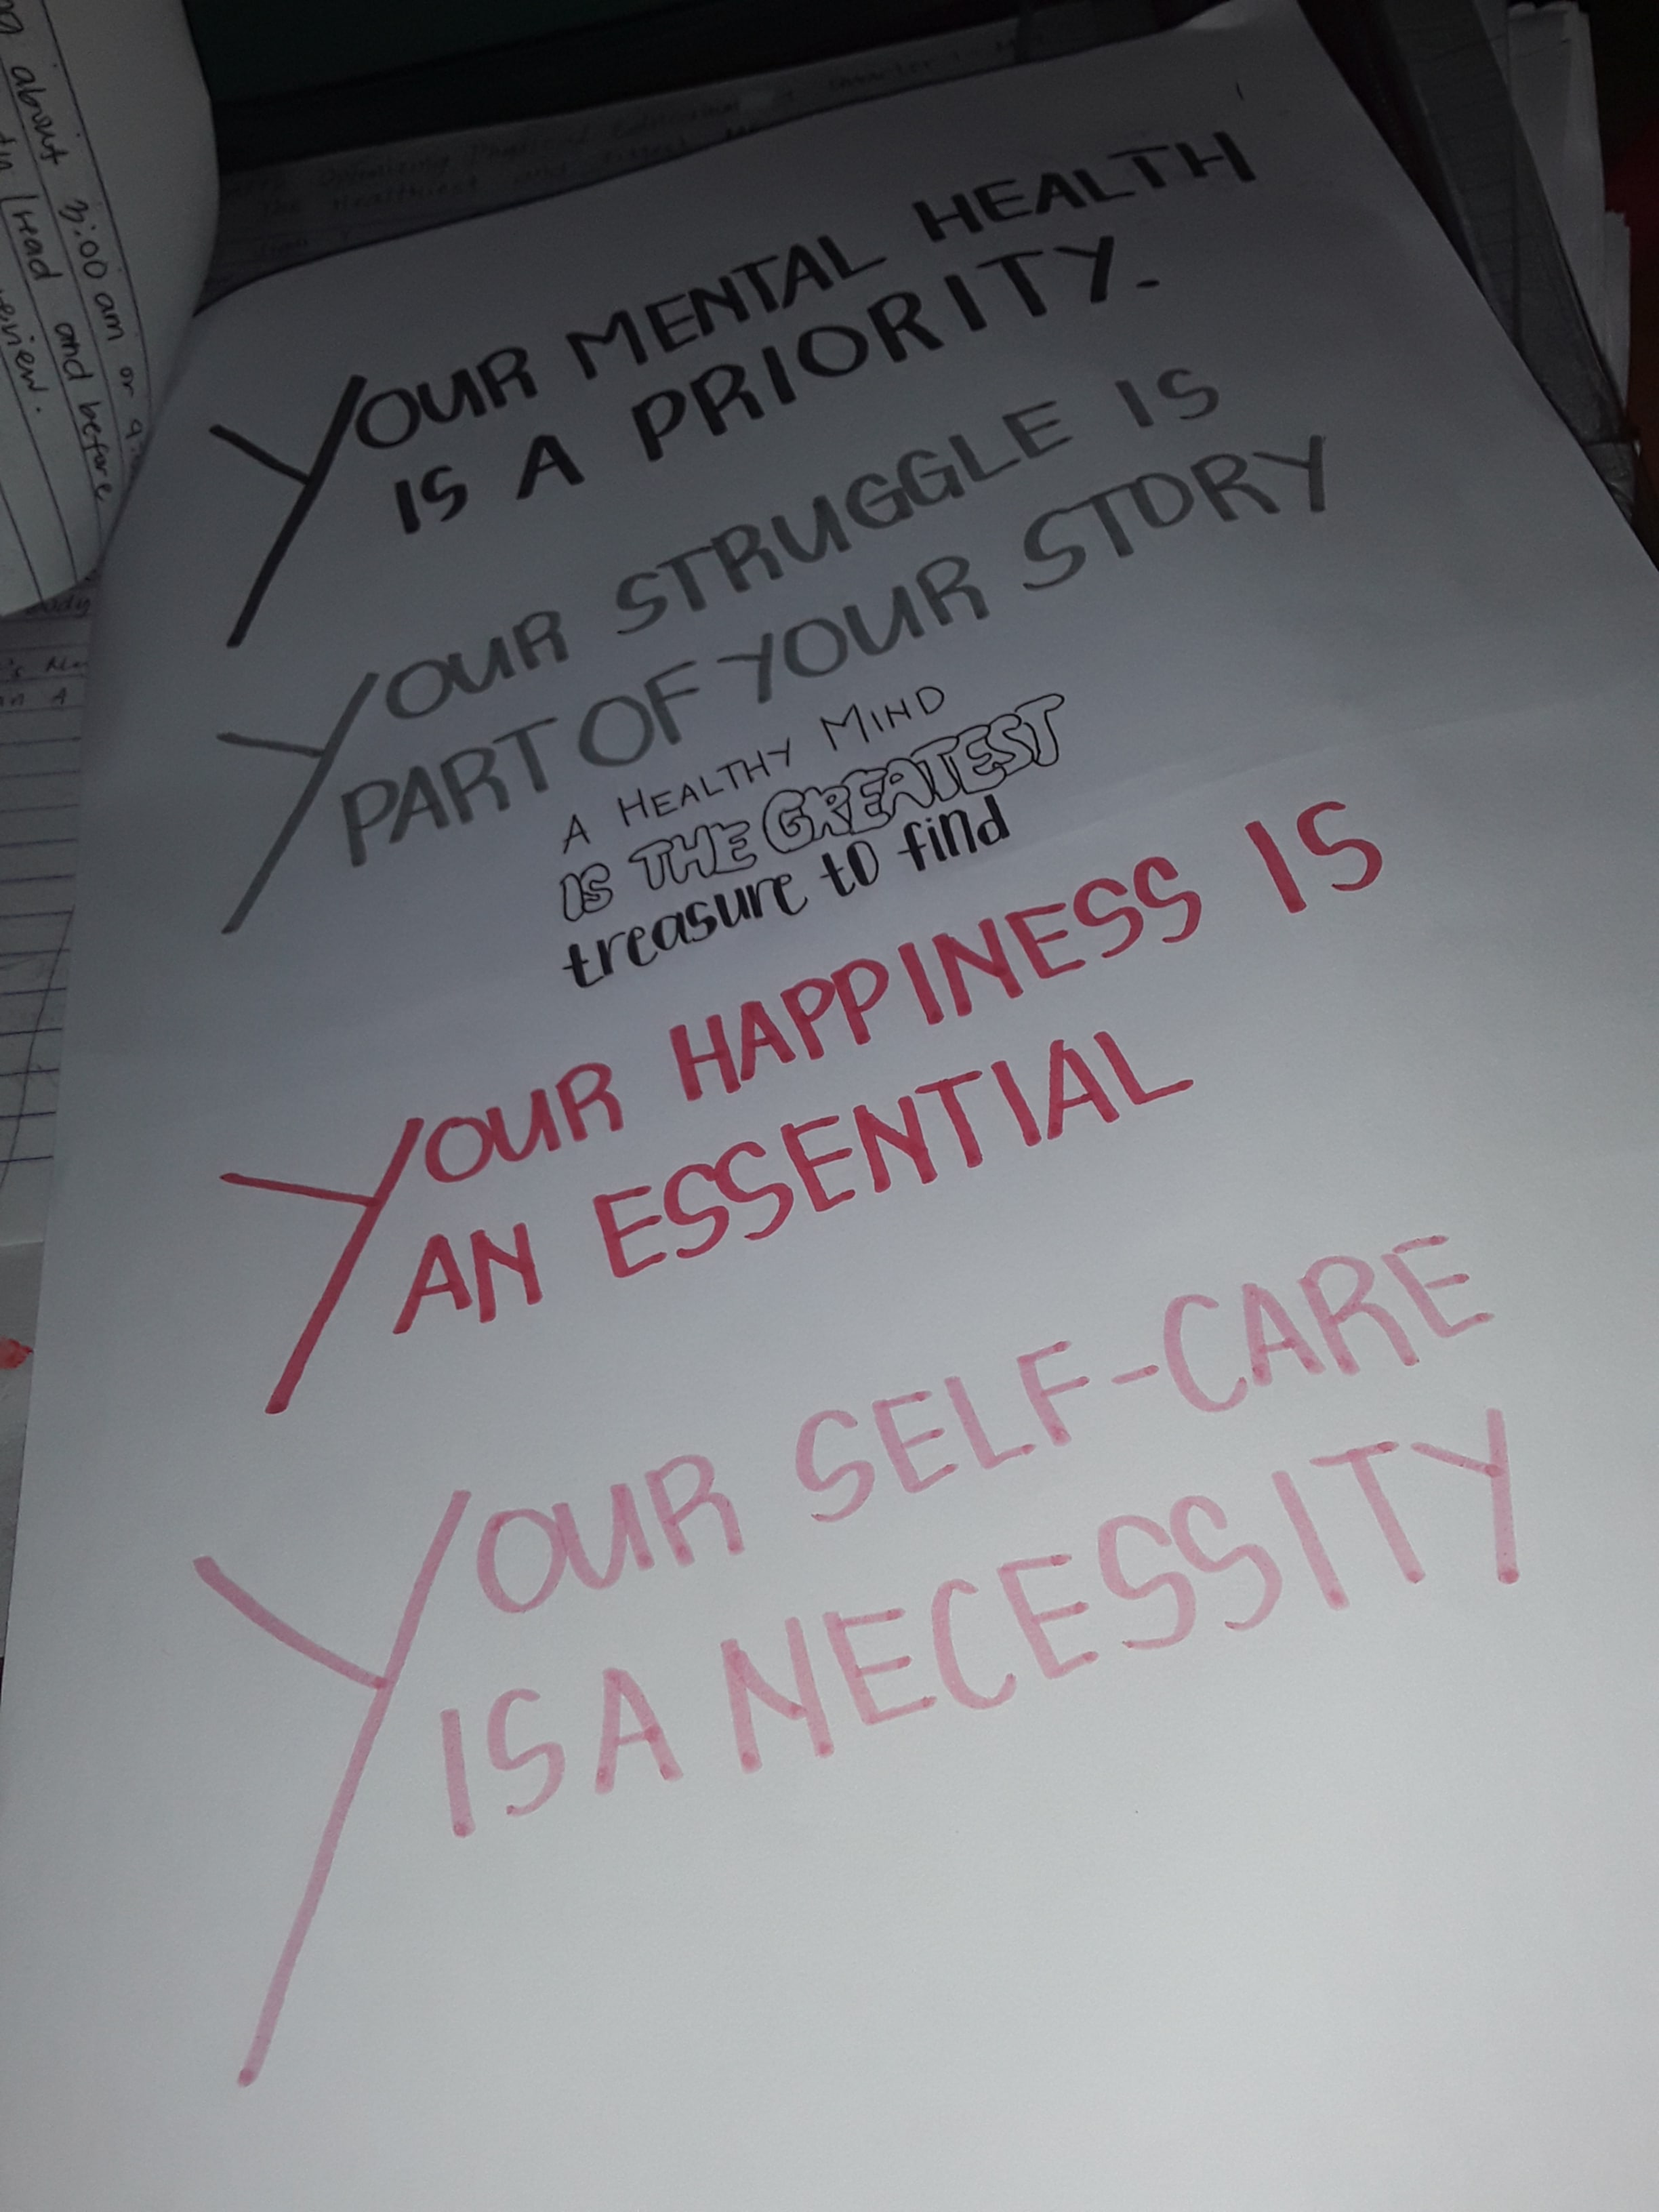 about 3:00 am or
read and before
review.
YOUR MENTAL HEALTH
IS A PRIORITY.
YOUR STRUGGLE IS
PART OF YOUR STORY
A HEALTHY MIND
IS THE GREATEST
treasure to find
YOUR HAPPINESS IS
AN ESSENTIAL
YOUR SELF-CARE
IS A NECESSITY